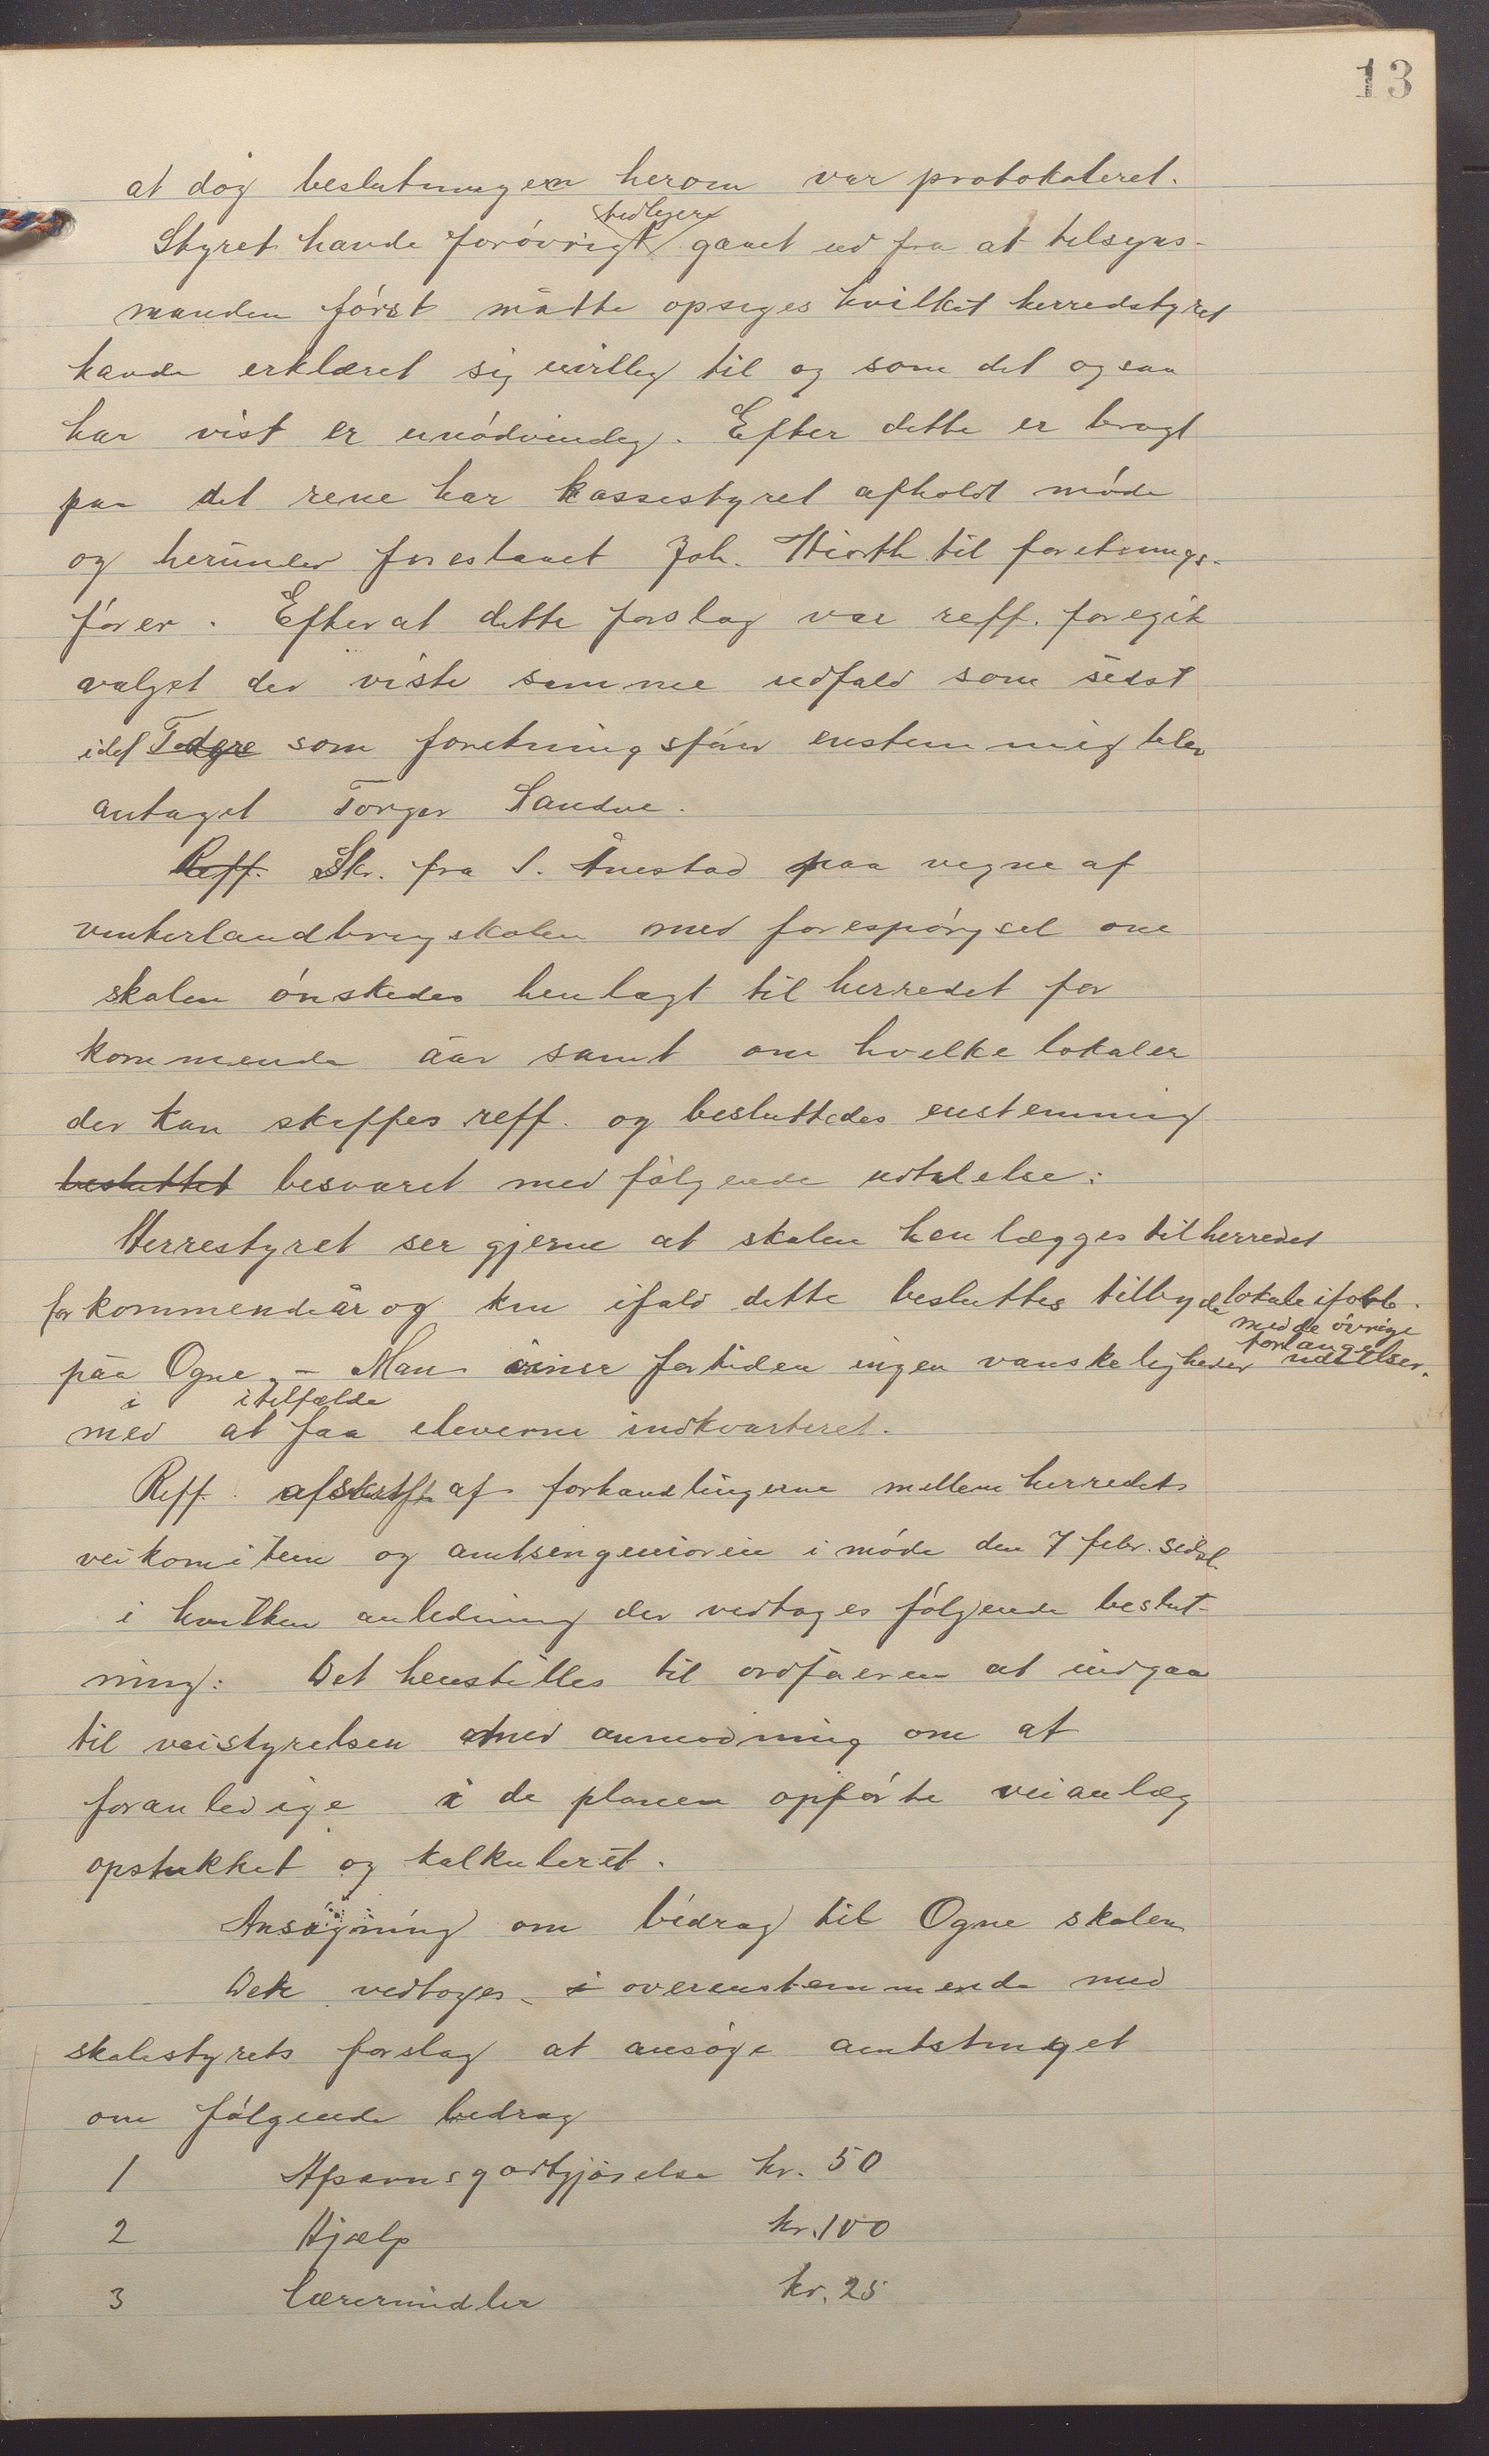 13
at dog beslutningen herom var protokoleret.
tidligere
Styret havde forøvrigt gaaet ud fra at tilsyns-
manden først måtte opsiges hvilket herredstyret
havde erklæret sig uvillig til og som det ogsaa
har vist er unødvendig. Efter dette er bragt
paa det rene har kassestyret afholdt møde
og herunder forestaaet Joh. Hiorth til foretnings-
fører. Efterat dette forslag var reff. foregik
valget der viste samme udfald som sidst
idet som foretningsfører enstemmig blev
antaget Torger Sandve.
Reff. Skr. fra S. Ånestad paa vegne af
vinterlandbrugskolen med forespørgsel om
skolen ønskedes henlagt til herredet for
kommende aar samt om hvilke lokaler
der kan skaffes reff. og besluttedes enstemmig
besluttet besvaret med følgende udtalelse:
Herrestyret ser gjerne at skolen henlægges til herredet
for kommende år og kan ifald dette besluttes tilbyde lokale i forb.
med de øvrige
forlangender
paa Ogne. – Man øiner fortiden ingen vanskeligheder
i i tilfælde
med at faa eleverne indkvarteret.
Reff. afskrift af forhandlingerne mellem herredets
veikomiteen og amtsingeniøren i møde den 7 febr. sidstl.
i hvilken anledning der vedtoges følgende beslut-
ning: Det henstilles til ordføreren at indgaa
til veistyrelsen med anmodning om at
foranledige i de planen opførte veianlæg
opstukket og kalkuleret.
Ansøgning om bidrag til Ogne skolen
Det vedtoges i overenstemmende med
skolestyrets forslag at ansøge amtstinget
om følgende bidrag
1 Afsavnsgodtgjørelse kr. 50
2 Hjælp kr. 100
3 Lærermidler kr. 25